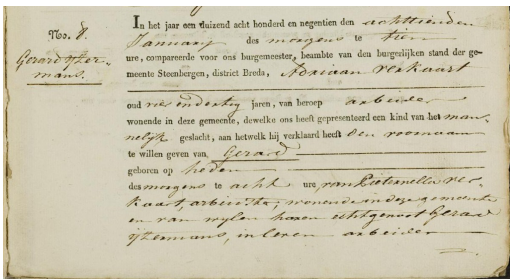 No. 8.
Gerard Ijzer-
mans.
In het jaar een duizend acht honderd en negentien den achttienden
January des morgens te tien
ure, compareerde voor ons burgemeester, beambte van den burgerlijken stand der ge-
meente Steenbergen, district Breda, Adriaan verkaart
oud vier endertig jaren, van beroep arbeider
wonende in deze gemeente, dewelke ons heeft gepresenteerd een kind van het man-
nelijk geslacht, aan hetwelk hij verklaard heeft den voornaam
te willen geven van Gerard
geboren op heden
des morgens te acht ure, van Pieternella ver-
kaart, arbeidster, wonende in deze gemeente
en van wylen haren echtgenoot Gerard
ijzermans, in leven arbeider